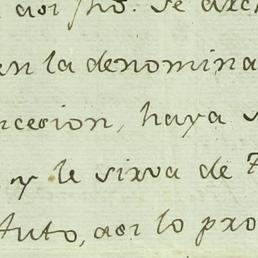 asi fho. Se arch
en la denomina
ncesion, haya s
y le sirva de T
tuto, asi lo pro